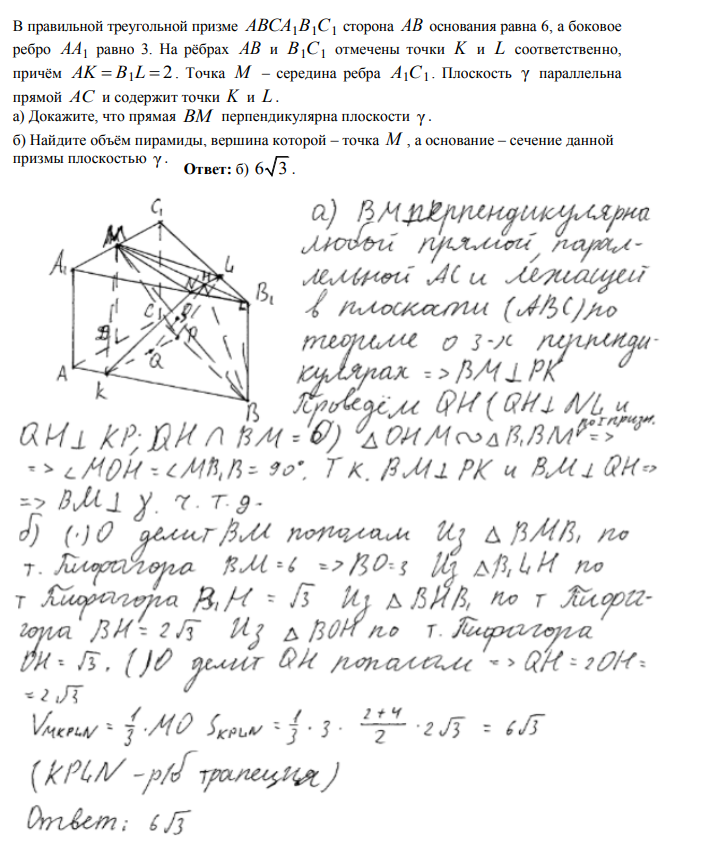 В правильной треугольной призме ABCA₁B₁C₁ сторона AB основания равна 6, а боковое
ребро AA₁ равно 3. На рёбрах AB и B₁C₁ отмечены точки K и L соответственно,
причём AK = B₁L = 2. Точка M – середина ребра A₁C₁. Плоскость γ параллельна
прямой AC и содержит точки K и L.
а) Докажите, что прямая BM перпендикулярна плоскости γ.
б) Найдите объём пирамиды, вершина которой – точка M, а основание – сечение данной
призмы плоскостью γ.
Ответ: б) 6√3.
C₁
M
L
A₁
N
H
B₁
C
P
Q
A
K
B
а) BM перпендикулярна
любой прямой, парал-
лельной AC и лежащей
в плоскати (ABC) по
теореме о 3-х перпенди-
кулярах => BM⊥PK
Проведём QH (QH⊥NL и
QH⊥KP; QH∩BM = O) △OHM∾△B₁BM =>
=> ∠MOH=∠MB₁B=90°. Т.к. BM⊥PK и BM⊥QH =>
=> BM⊥γ. ч.т.д.
б) (·) O делит BM попалам Из △BMB₁ по
т. Пифагора BM=6 => BO=3 Из △B₁LH по
т Пифагора B₁H = √3 Из △BHB₁ по т Пифа-
гора BH=2√3 Из △BOH по т. Пифагора
OH=√3. (·)O делит QH попалам => QH=2OH=
=2√3
V_MKPLN = 1/3 · MO S_KPLN = 1/3 · 3 · (2+4)/2 · 2√3 = 6√3
(KPLN – р/б трапеция)
Ответ: 6√3